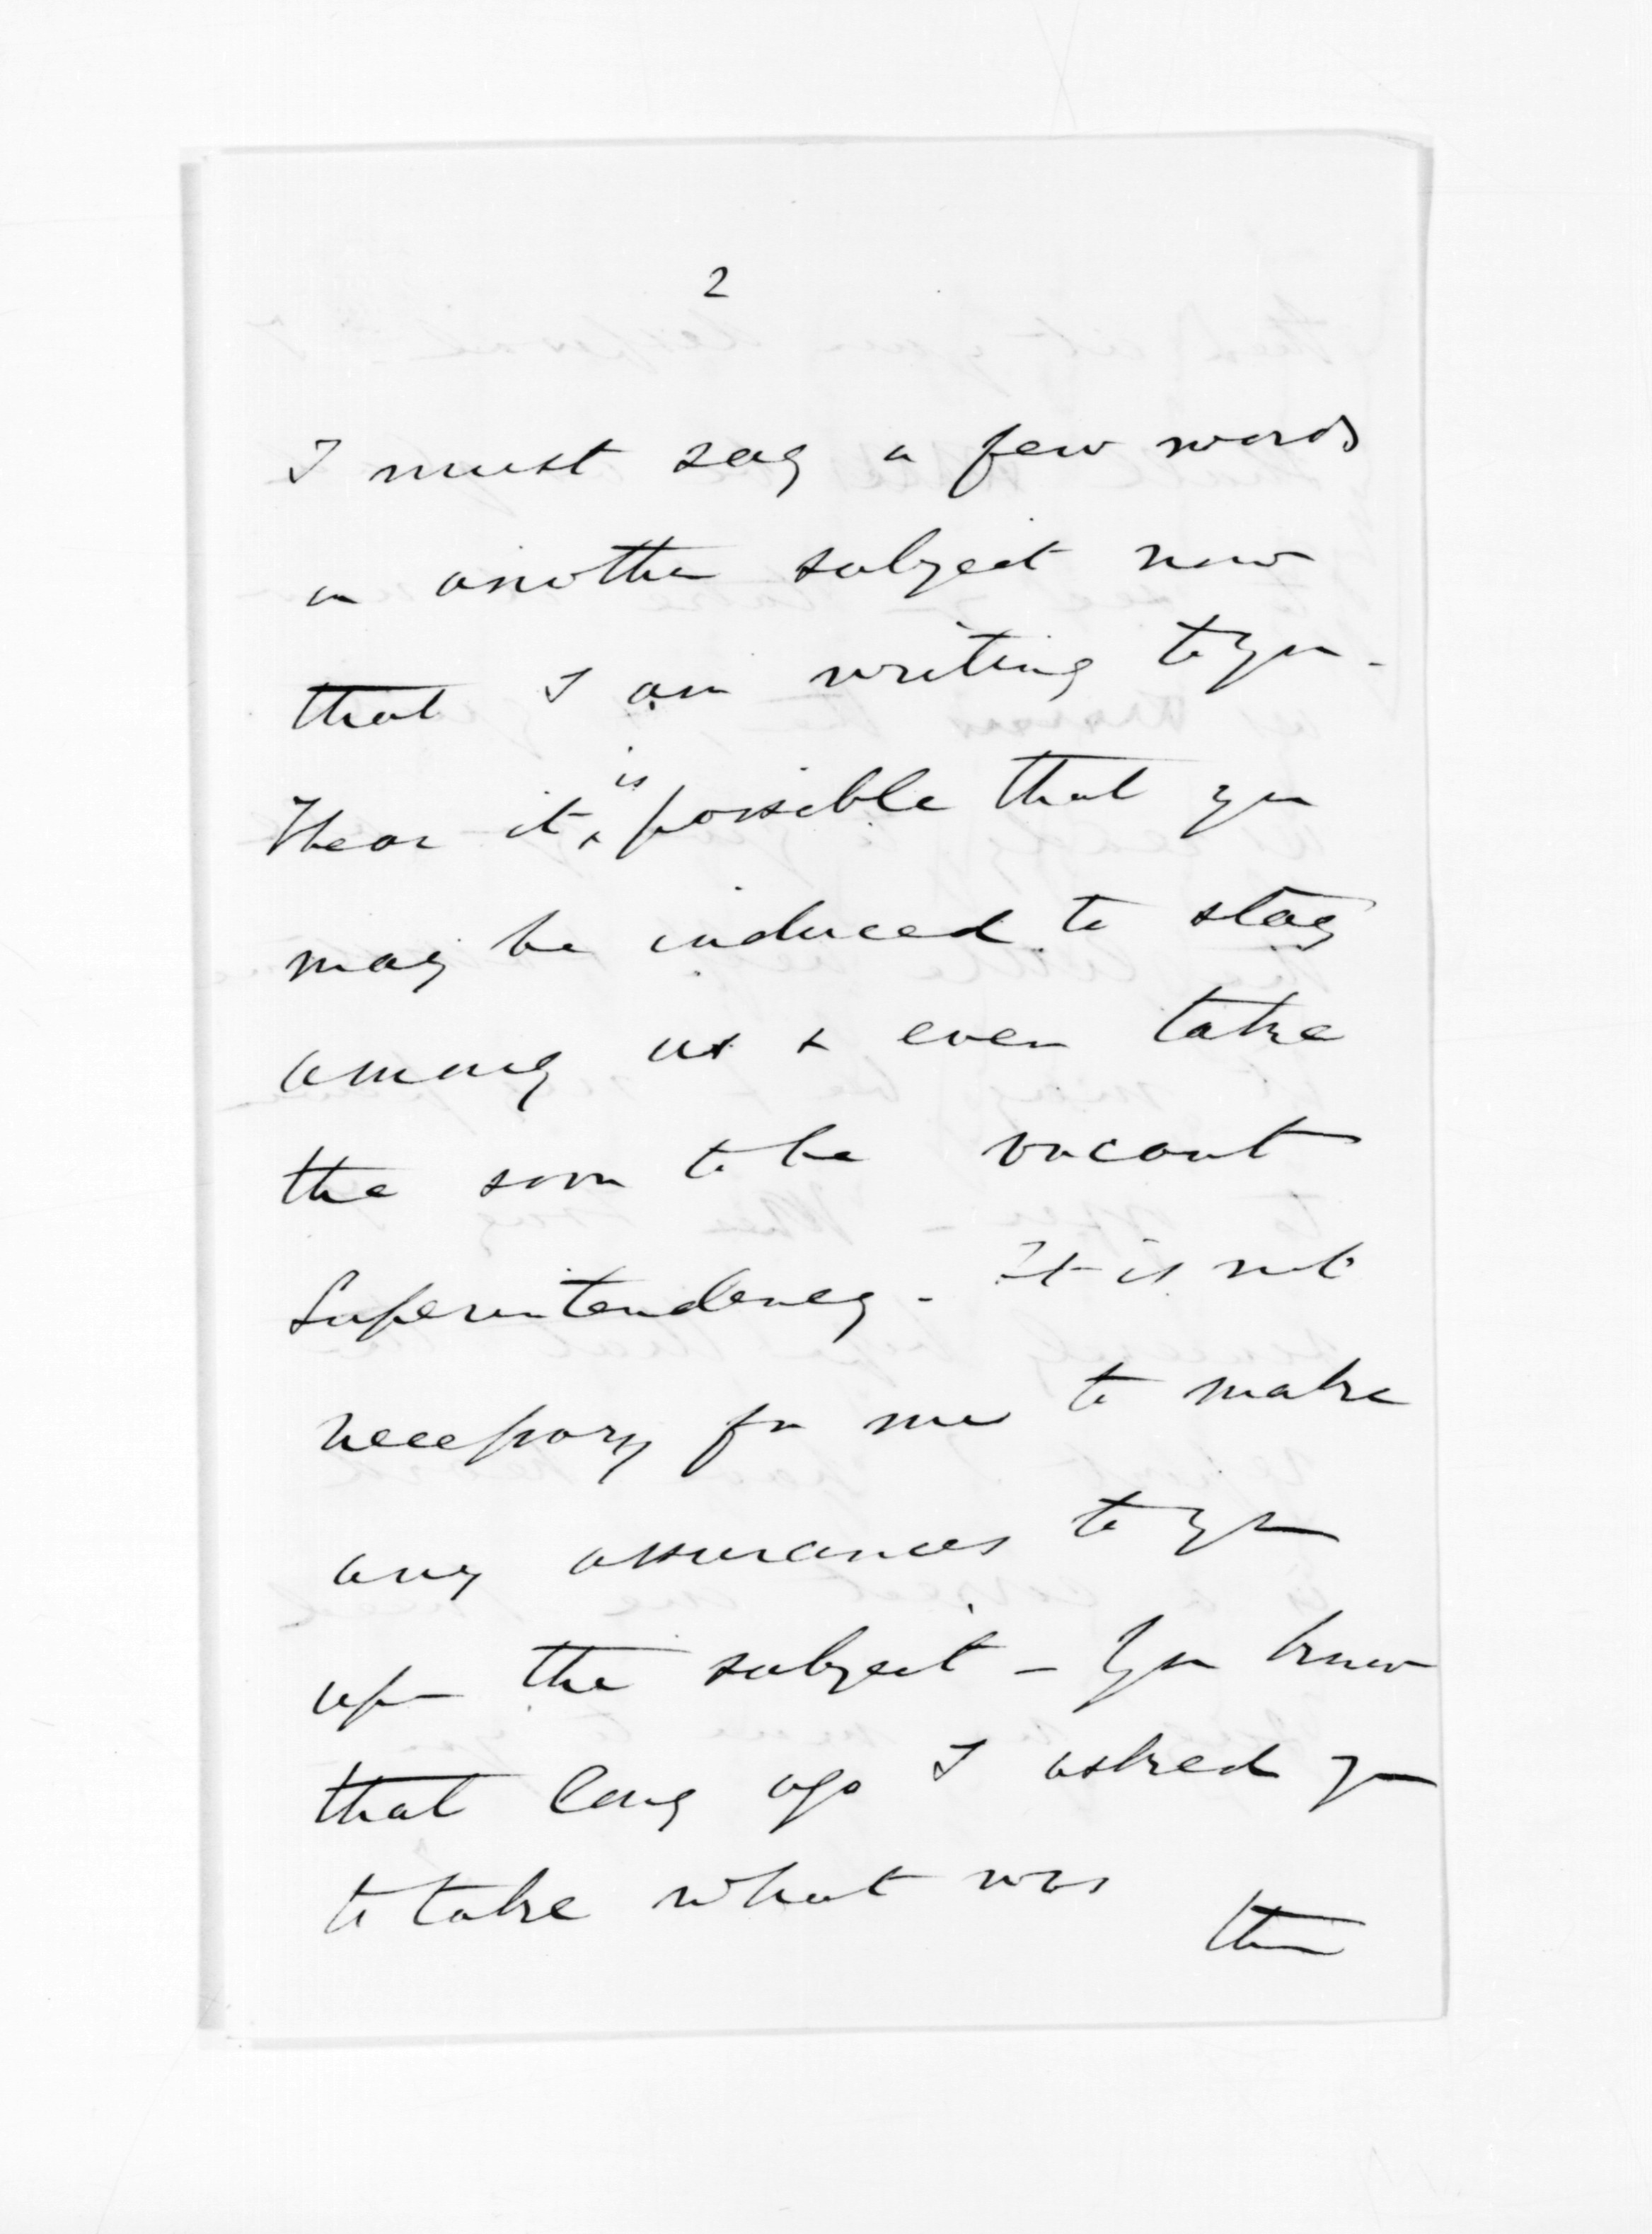 2
I must say a few words
on another subject now
that I am writing to you -
I hear it is possible that you
may be induced to stay
among us & even take
the soon to be vacant
Superintendency - It is not
necessary for me to make
any assurances to you
upon the subject - You know
that long ago I asked you
to take what was
then